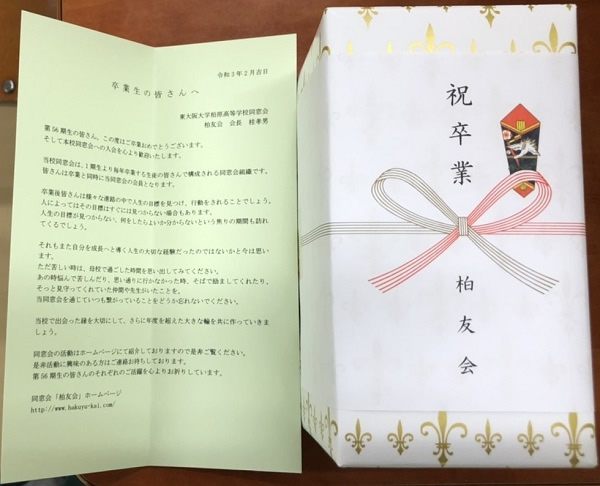 令和3年2月吉日
卒業生の皆さんへ
東大阪大学柏原高等学校同窓会
柏友会 会長 桂孝男
第56期生の皆さん、この度はご卒業おめでとうございます。
そして本校同窓会への入会を心より歓迎いたします。
当校同窓会は、1期生より毎年卒業する生徒の皆さんで構成される同窓会組織です。
皆さんは卒業と同時に当同窓会の会員となります。
卒業後皆さんは様々な連絡の中で人生の目標を見つけ、行動をされることでしょう。
人によってはその目標はすぐには見つからない場合もあります。
人生の目標が見つからない、何をしたらよいか分からないという焦りの期間も訪れ
てくるでしょう。
それもまた自分を成長へと導く人生の大切な経験だったのではないかと今は思い
ます。
ただ苦しい時は、母校で過ごした時間を思い出してみてください。
あの時悩んで苦しんだり、思い通りに行かなかった時、そばで励ましてくれたり、
そっと見守ってくれていた仲間や先生がいたことを。
当同窓会を通じていつも繋がっていることをどうか忘れないでください。
当校で出会った縁を大切にして、さらに年度を超えた大きな輪を共に作っていきま
しょう。
同窓会の活動はホームページにて紹介しておりますので是非ご覧ください。
是非活動に興味のある方はご連絡お待ちしております。
第56期生の皆さんのそれぞれのご活躍を心よりお祈りしています。
同窓会「柏友会」ホームページ
http://www.hakuyu-kai.com/
祝卒業
柏友会